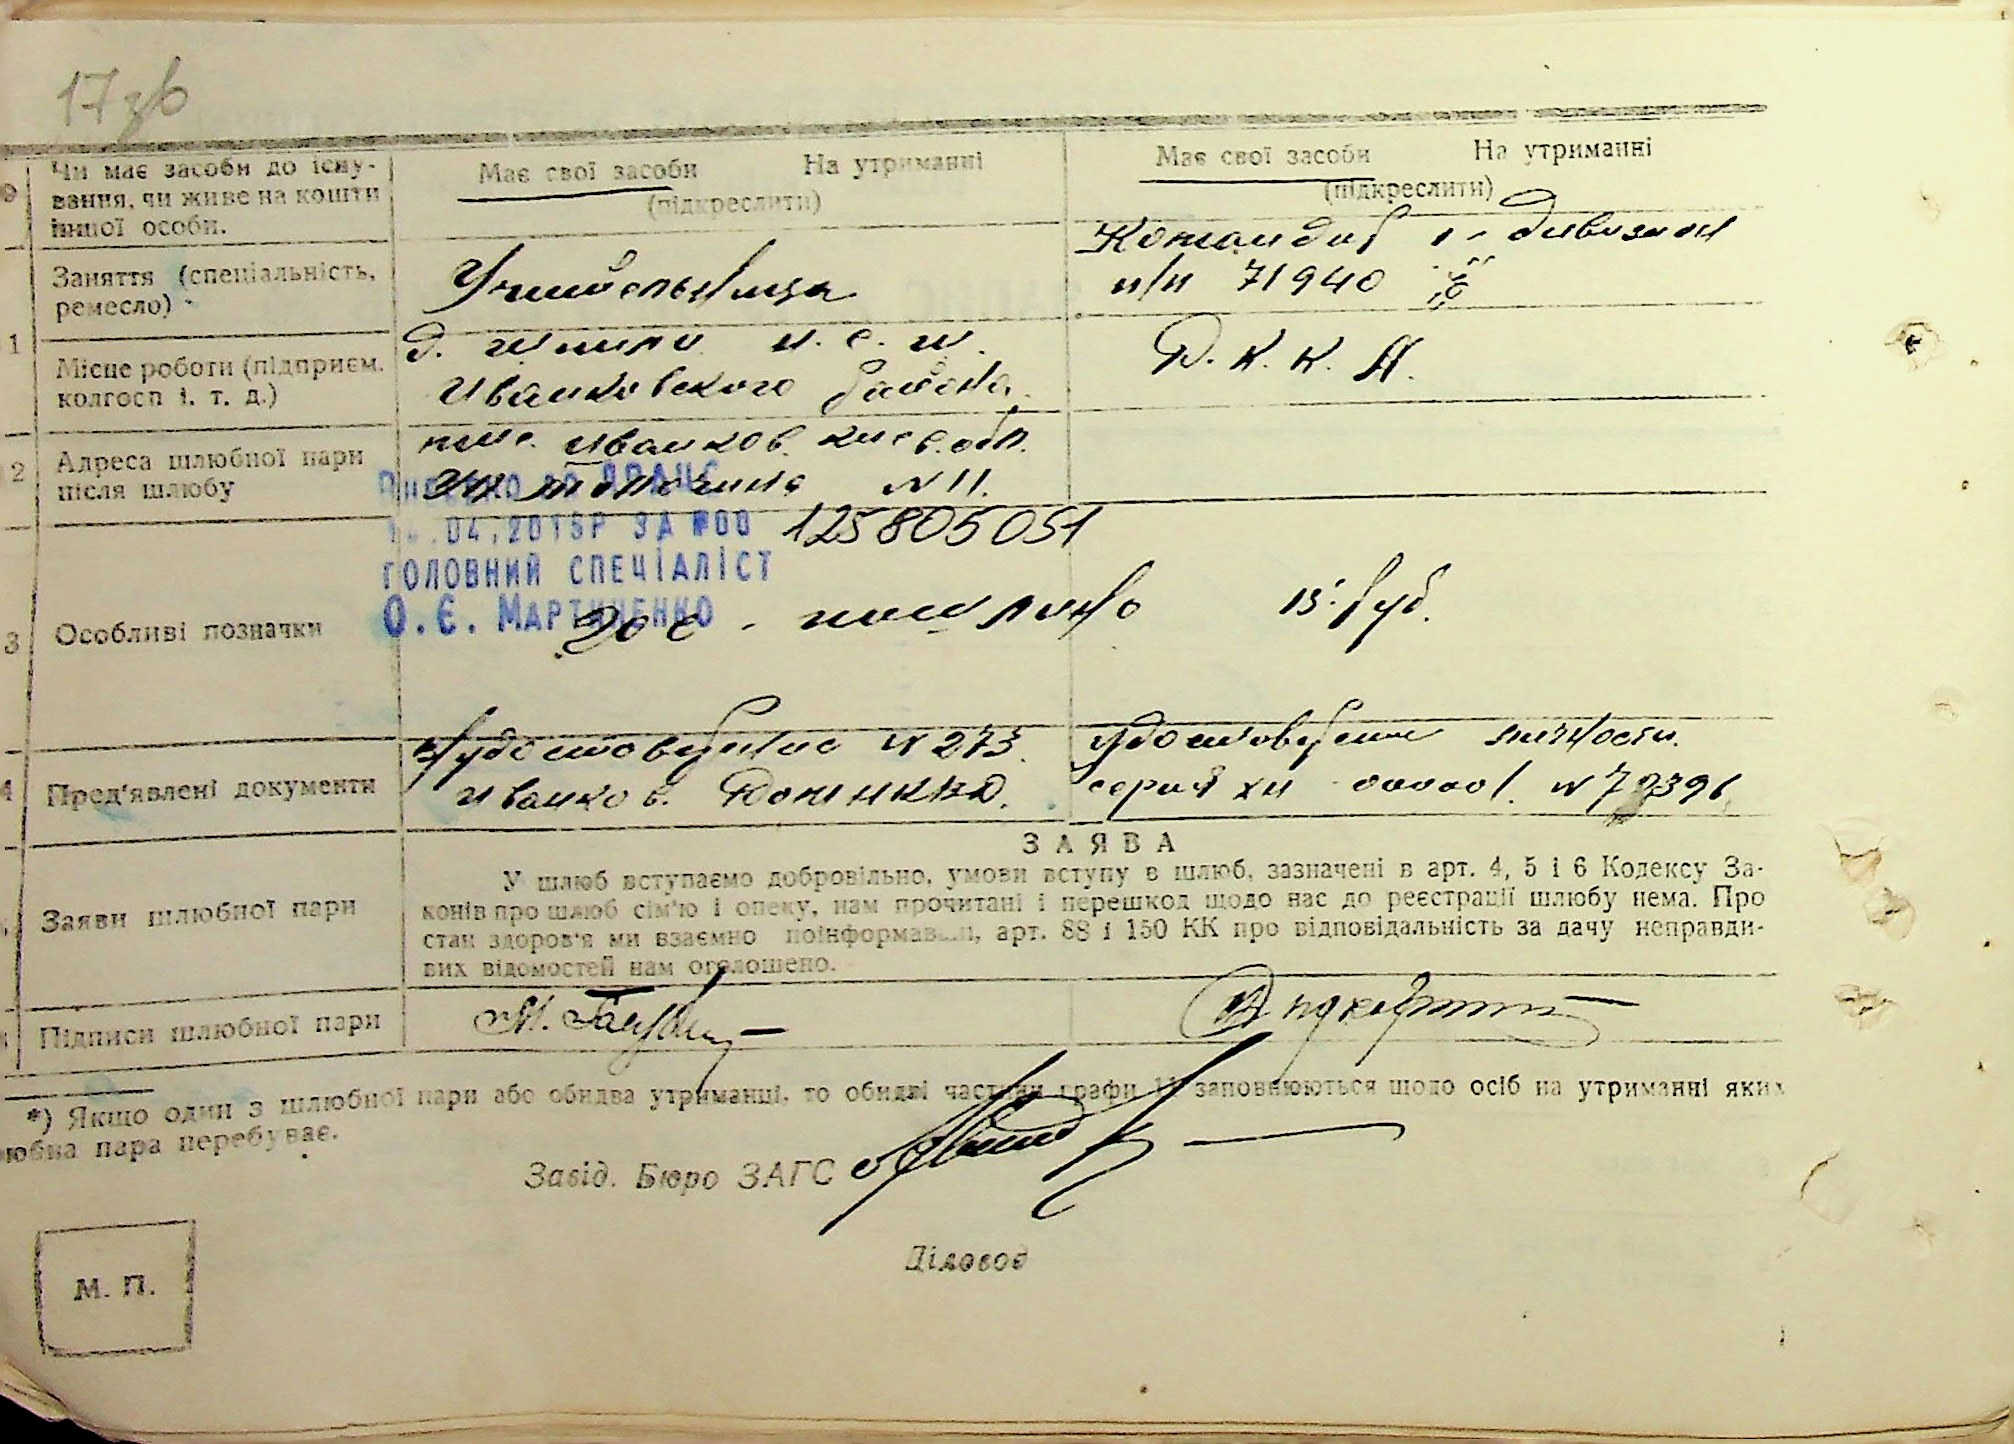 17зв
Чи має засоби до існу-
вання, чи живе на кошти
іншої особи.
Має свої засоби На утриманні
(підкреслити)
Має свої засоби На утриманні
(підкреслити)
Заняття (спеціальність,
ремесло)
Учительница
Командир дивизии
п/п 71940
1
Місце роботи (підприєм.
колгосп і. т. д.)
н. с. ш.
Иванковского района
Р. К. К. А.
2
Адреса шлюбної пари
після шлюбу
Иванков. киев. обл.
N 11.
.04.2015Р ЗА №00 125805051
ГОЛОВНИЙ СПЕЦІАЛІСТ
О.Є. МАРТИНЕНКО
3
Особливі позначки
пошлина 15 руб.
4
Пред'явлені документи
удостоверение N 273.
Иванков.
удостоверение личности.
серия
ЗАЯВА
Заяви шлюбної пари
У шлюб вступаємо добровільно, умови вступу в шлюб, зазначені в арт. 4, 5 і 6 Кодексу За-
конів про шлюб сім'ю і опеку, нам прочитані і перешкод щодо нас до реєстрації шлюбу нема. Про
стан здоров'я ми взаємно поінформавали, арт. 88 і 150 КК про відповідальність за дачу неправди-
вих відомостей нам оголошено.
Підписи шлюбної пари
М.
*) Якщо один з шлюбної пари або обидва утриманці, то обидві частини графи 11 заповнюються щодо осіб на утриманні яких
юбна пара перебуває.
Завід. Бюро ЗАГС
Діловод
М. П.